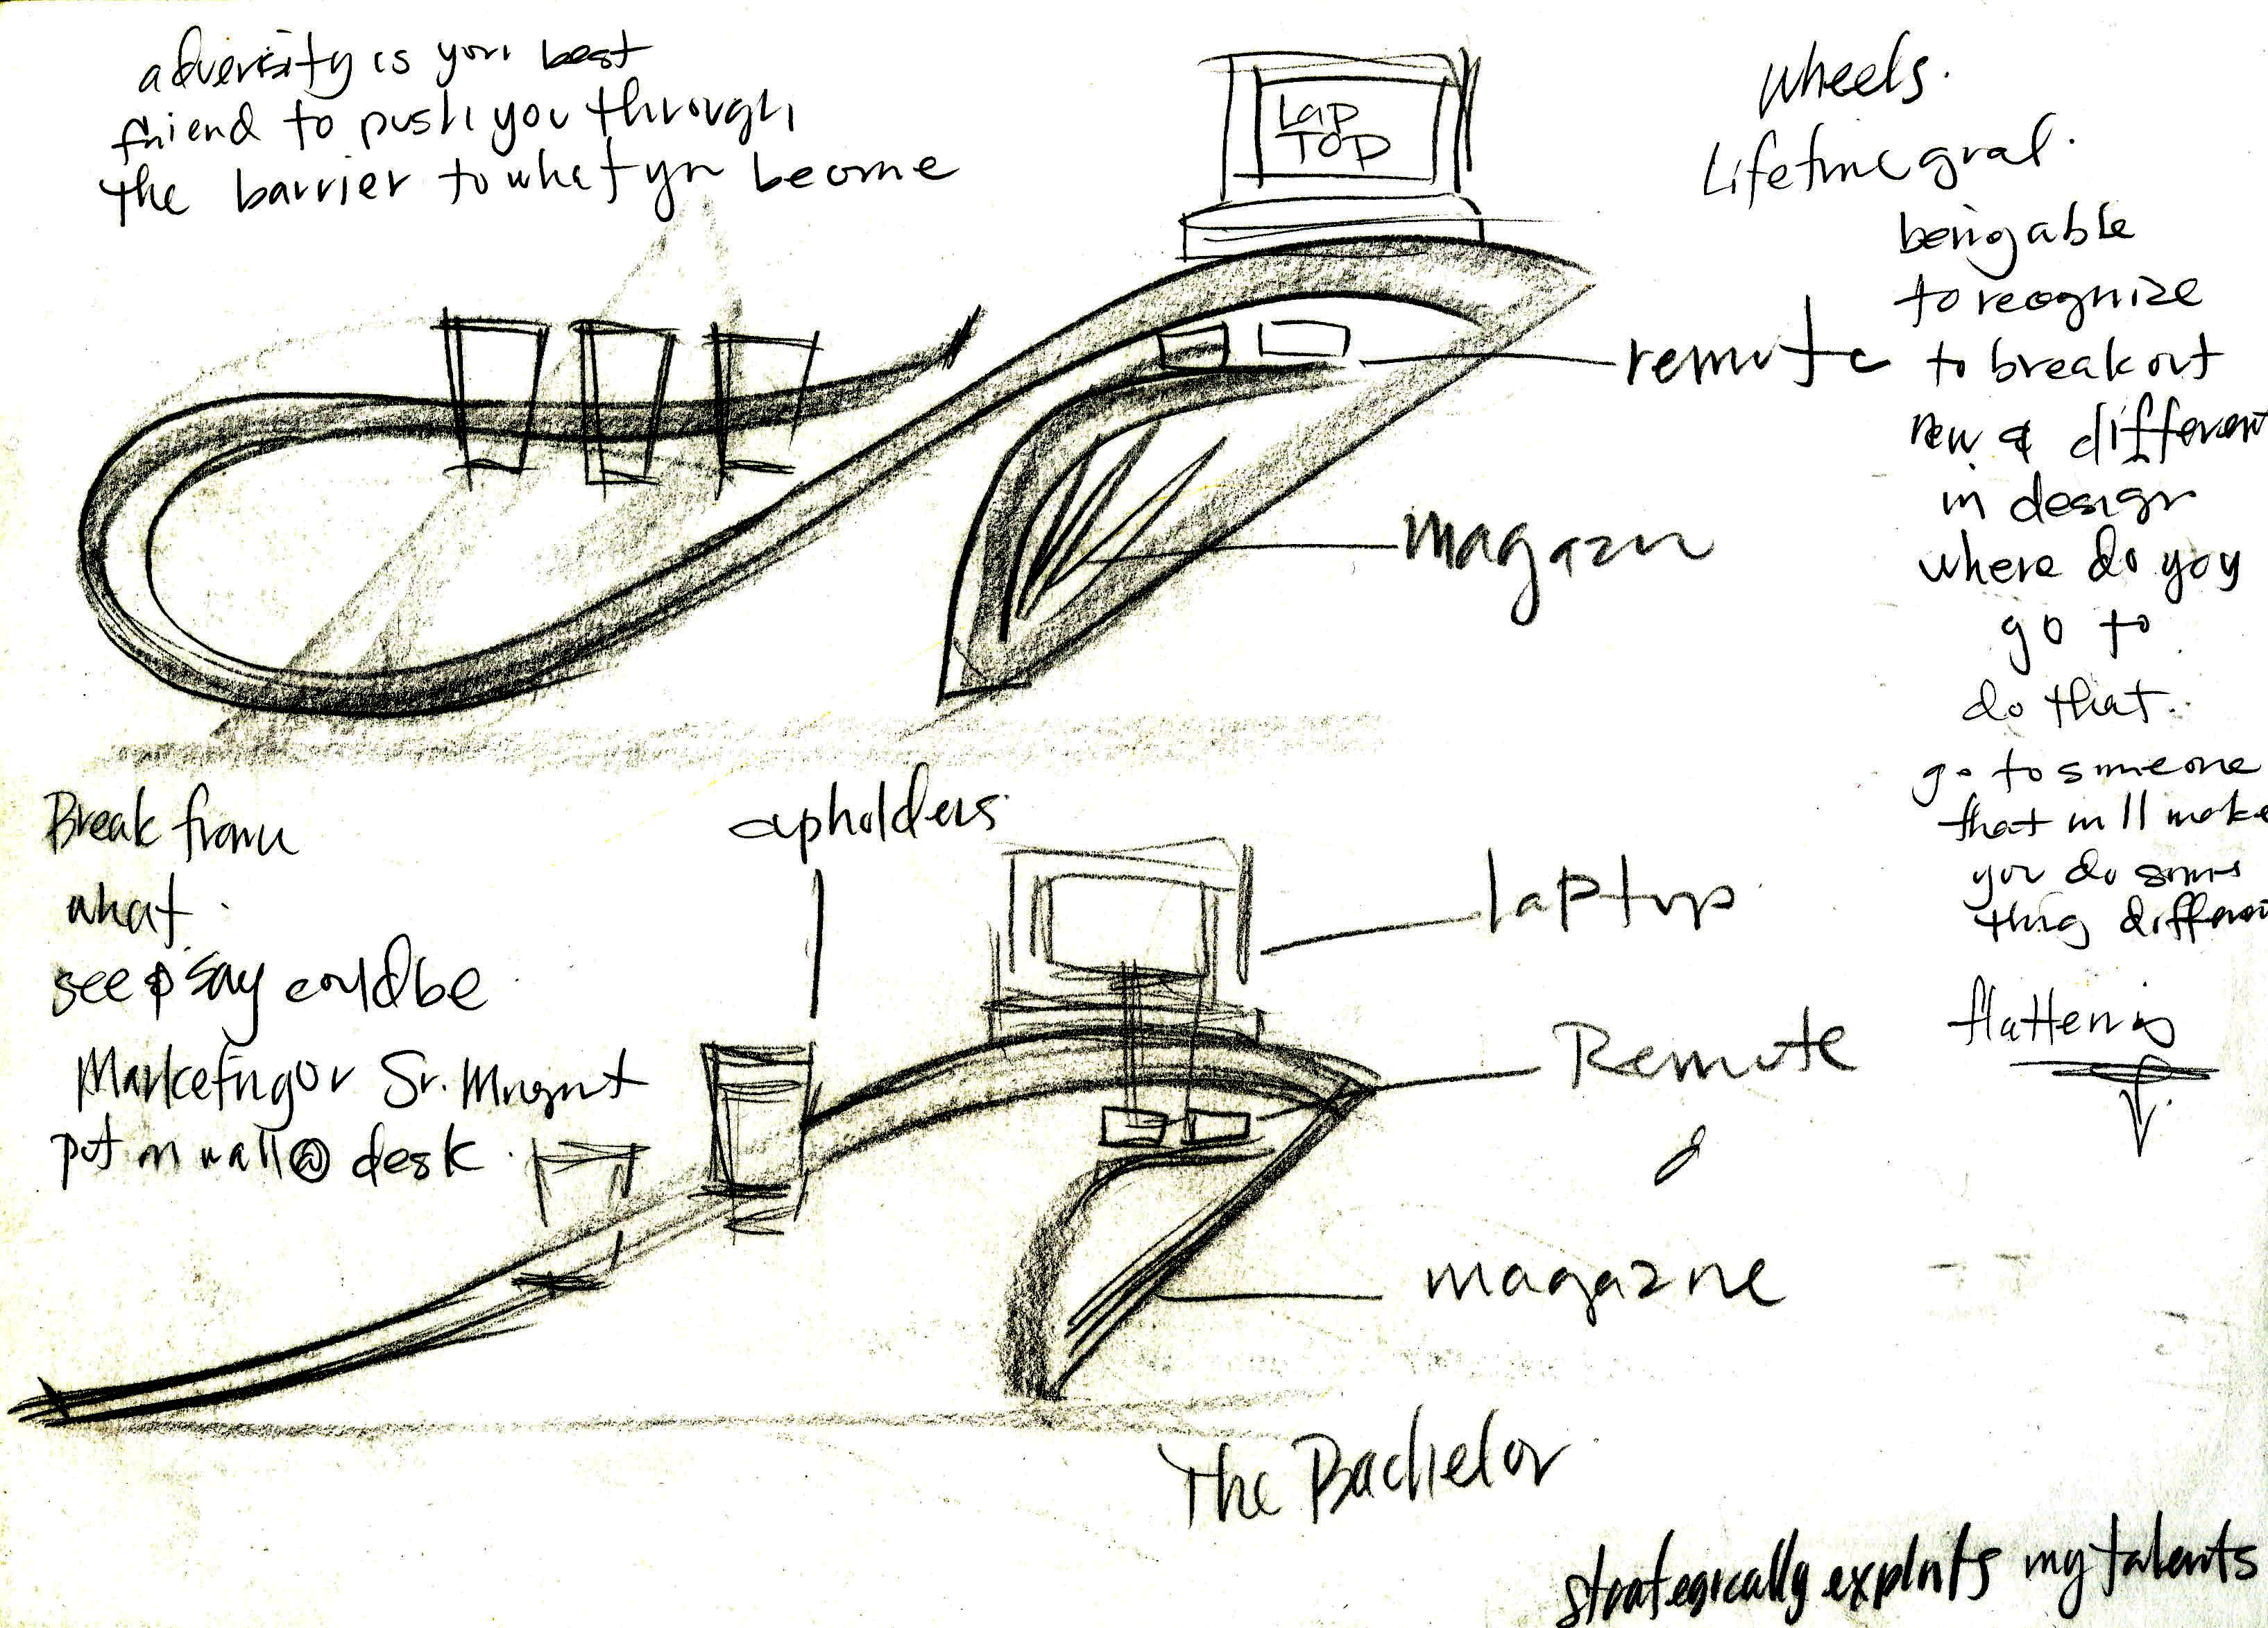 adversity is your best
friend to push you through
the barrier to what yn become
Lap
TOP
wheels.
Lifetime goal.
being able
to recognize
to break out
new & different
in design
where do you
go to
do that..
go to someone
that will make
you do some
thing different
flattening
remote
magazn
Break from
what
see & say could be
Marketing or Sr. Mngmt
put on wall @ desk.
cupholders.
laptop
Remote
&
magazne
The Bachelor
strategically exploits my talents